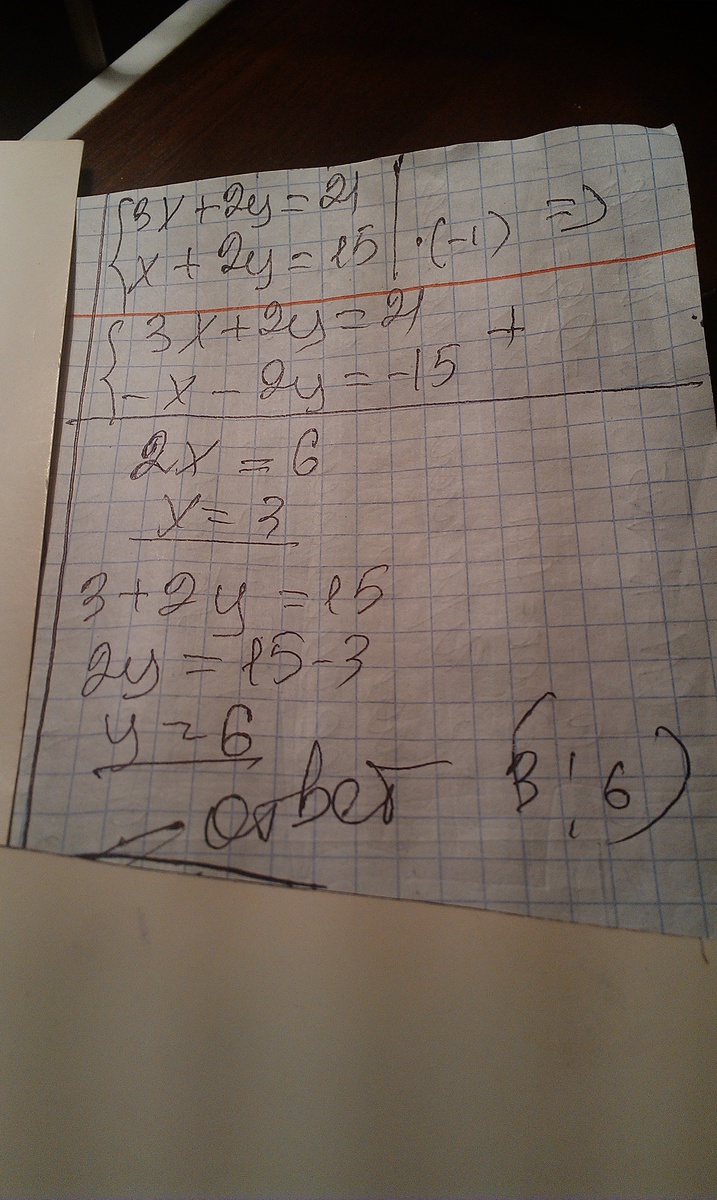 {3x+2y=21 |
{x+2y=15 | ·(-1) =>
{3x+2y=21 +
{-x-2y=-15
2x=6
x=3
3+2y=15
2y=15-3
y=6
ответ (3;6)